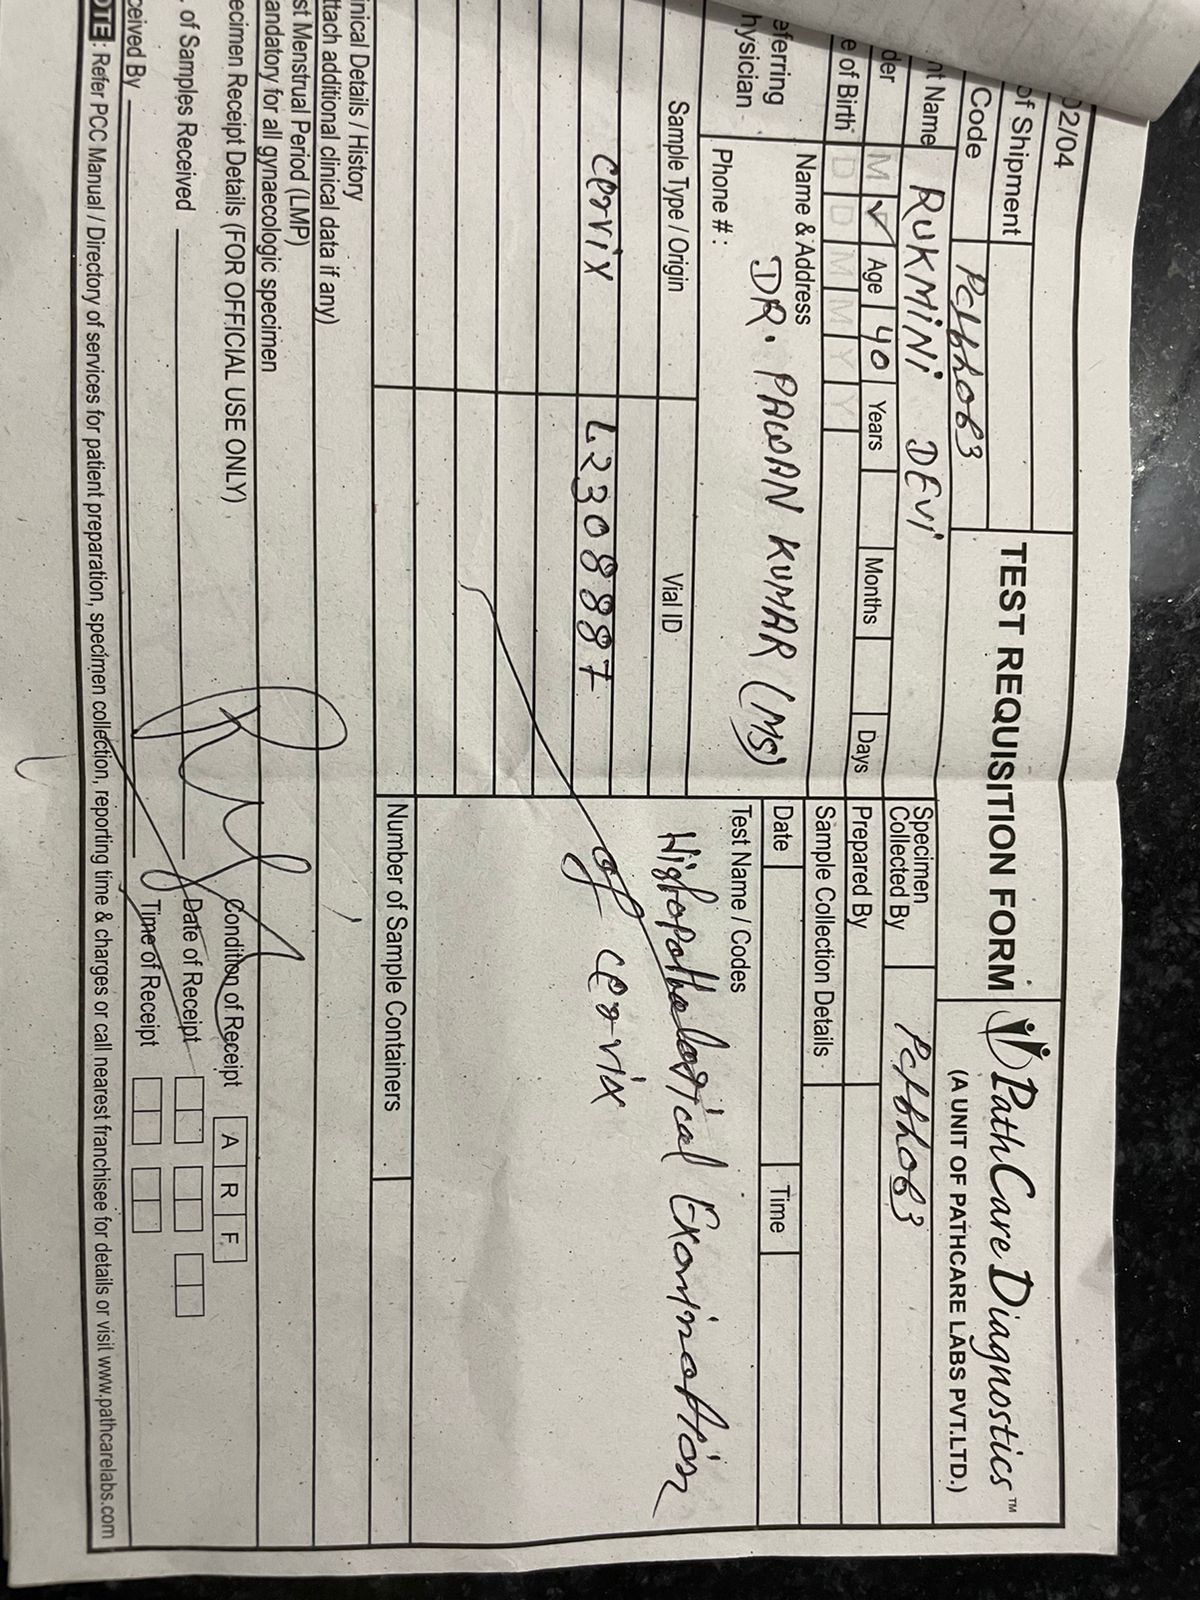 02/04
of Shipment
Code
TEST REQUISITION FORM
PathCare Diagnostics™
(A UNIT OF PATHCARE LABS PVT.LTD.)
nt Name RUKMINI DEVI
Specimen Collected By
der M ✓ Age 40 Years Months Days
Prepared By
e of Birth D D M M Y Y
Sample Collection Details
eferring
hysician
Name & Address DR. PAWAN KUMAR (MS)
Phone #:
Date Time
Sample Type / Origin Vial ID
Test Name / Codes
cervix L2308887
Histopathological Examination
of cervix
Number of Sample Containers
inical Details / History
ttach additional clinical data if any)
st Menstrual Period (LMP)
andatory for all gynaecologic specimen
ecimen Receipt Details (FOR OFFICIAL USE ONLY)
Condition of Receipt A R F
. of Samples Received
Date of Receipt
ceived By
Time of Receipt
OTE: Refer PCC Manual / Directory of services for patient preparation, specimen collection, reporting time & charges or call nearest franchisee for details or visit www.pathcarelabs.com